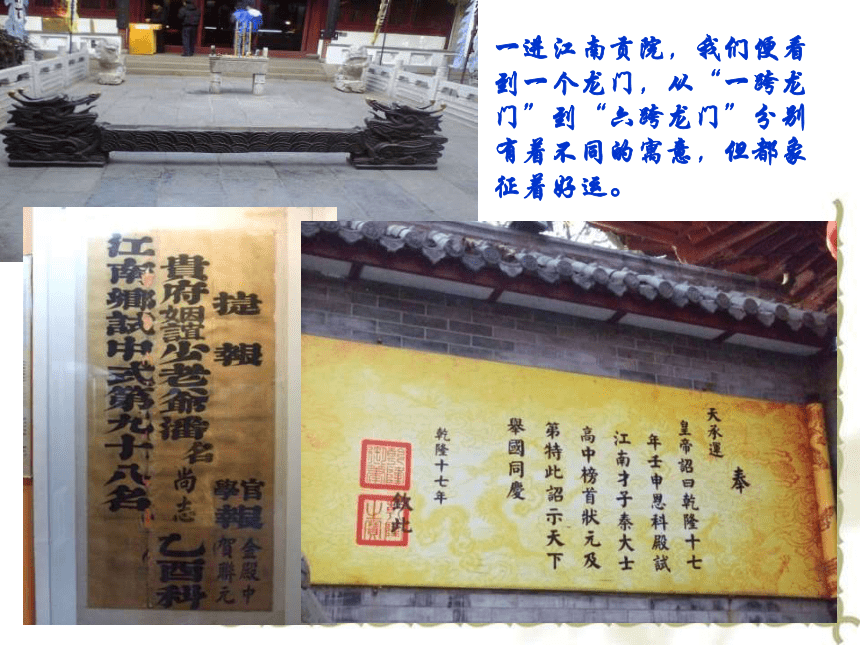 一进江南贡院，我们便看
到一个龙门，从“一跨龙
门”到“六跨龙门”分别
有着不同的寓意，但都象
征着好运。
捷報
貴府姻誼少老爺潘名尚志
江南鄉試中式第九十八名
官報
學報
金殿中
賀聯元
乙酉科
奉
天承運
皇帝詔曰乾隆十七
年壬申恩科殿試
江南才子秦大士
高中榜首狀元及
第特此詔示天下
舉國同慶
乾隆十七年
欽此